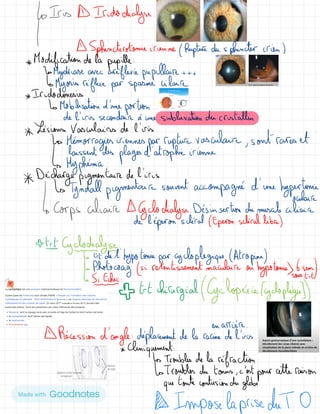 ↳ Iris ⚠ Iridodialyse
⚠ Sphincterotomie irienne (Rupture du sphincter irien)
* Modification de la pupille
↳ Mydriase avec aréflexie pupillaire +++
↳ Myosis réflexe par spasme ciliaire
* Iridodonésis
↳ Mobilisation d'une portion
de l'iris secondaire à une subluxation du cristallin
* Lésions Vasculaires de l'iris
↳ Hémorragies iriennes par rupture vasculaire, sont rares et
laissent des plages d'atrophie irienne
↳ Hyphéma
* Décharge pigmentaire de l'iris
↳ Tyndall pigmentaire souvent accompagné d'une hypertonie
↳ Corps ciliaire ⚠ Cyclodialyse Désinsertion du muscle ciliaire
de l'éperon scléral
ttt Cyclodialyse
ttt de l'hypotonie par cycloplégique (Atropine)
Photocoag (si retentissement maculaire ou hypotonie)
Si Echec
+ ttt chirurgical
⚠ Récession d'angle déplacement de la racine de l'iris
en arrière
* Cliniquement
↳ Troubles de la réfraction
↳ Troubles du tonus, c'est pour cette raison
que toute contusion du globe
⚠ Impose la prise du TO
Made with Goodnotes